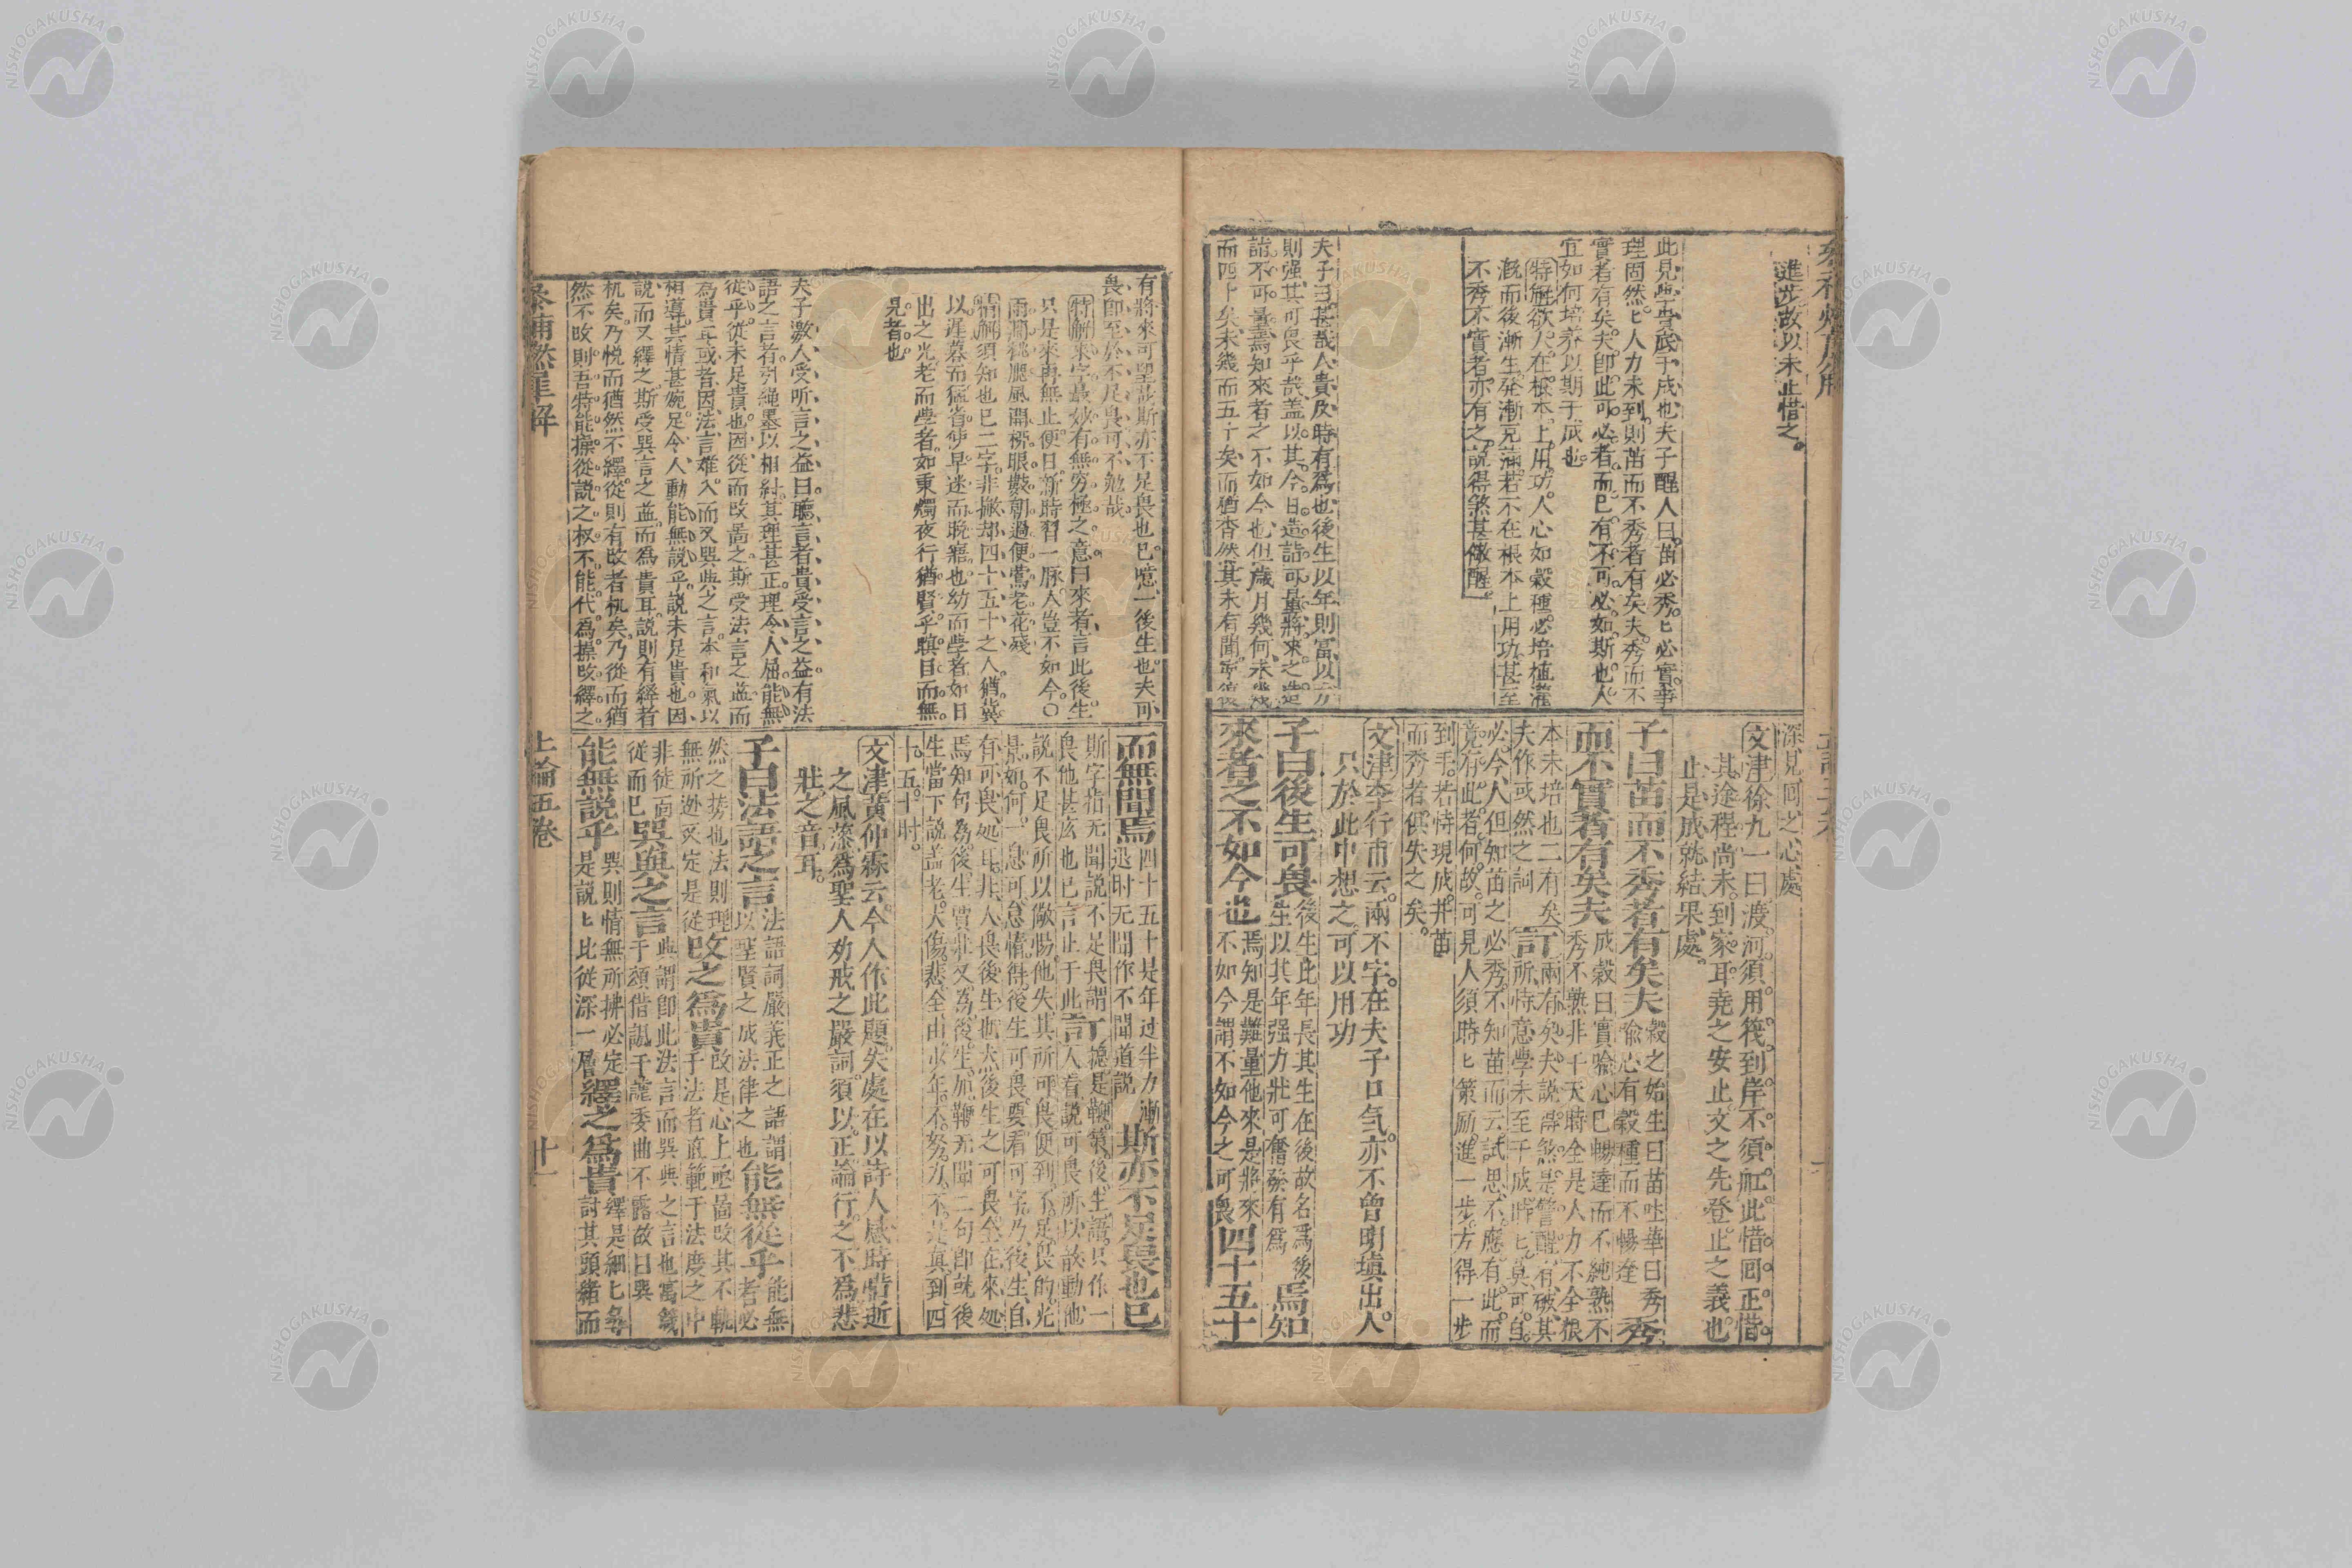 進步故以未止惜之。
此見學貴底于成也夫子醒人曰苗必秀。匕必實。事
理固然。匕人力未到。則苗而不秀者有矣夫。秀而不
實者有矣夫。卽此可必者而已有不可必如斯也。人
宜如何培养以期于成也。
特解欲人在根本上用功。人心如穀種必培植灌
溉而後漸生發漸充滿若不在根本上用功甚至
不秀不實者亦有之。說得煞甚儆醒。
夫子曰甚哉人貴及時有爲也後生以年則富以力
則强其可畏乎哉蓋以其今日造詣可量將來之造
詣不可量焉知來者之不如今也但歲月幾何未幾
而四十矣未幾而五十矣而猶杳然其未有聞
深見回之心處
文津徐九一曰渡河須用筏到岸不須舡此惜回正惜
其途程尚未到家耳堯之安止文之先登止之義也
止是成就結果處。
子曰苗而不秀者有矣夫 穀之始生曰苗吐華曰秀喻心有穀種而不暢逹 秀
而不實者有矣夫 成穀曰實喻心已暢達而不純熟不秀不熟非千天時全是人力不全根
本未培也二有矣夫作或然之詞 訂 兩有矣夫說得煞是警醒有破其所恃意學未至于成時匕莫可自
必今人但知苗之必秀不知苗而云試思不應有此而
竟有此者何故可見人須時匕策励進一步方得一步
到手若恃現成并苗
而秀者俱失之矣。
文津李行甫云兩不字在夫子口気亦不曾明塡出人
只於此中想之可以用功
子曰後生可畏 後生此年長其生在後故名爲後生以其年强力壯可奮發有爲 焉知
來者之不如今也 焉知是難量他來是將來不如今謂不如今之可畏 四十五十
上論五卷
十一
有將來可望哉斯亦不足畏也已。噫一後生也。夫可
畏卽至於不足畏可不勉哉
特解來字最妙有無穷極之意曰來者言此後生
只是來再無止便日新時習一豚人豈不如今。〇
雨澗桃颸風開榜眼數朝過便鶯老花殘
情解須知也已二字非撇却四十五十之人猶冀
以遲暮而猛省使早迷而晚寤也幼而學者如日
出之光老而學者如秉燭夜行猶賢乎瞋目而無
見者也。
夫子激人受听言之益曰聽言者貴受言之益有法
語之言者引繩墨以相糾其理甚正理令人屈能無
從乎從未足貴也因從而改焉之斯受法言之益而
為貴耳或者因法言难入而又巽與之言本和氣以
相導其情甚婉足令人動能無說乎說未足貴也因
說而又繹之斯受巽言之益而為貴耳說則有繹者
机矣乃悅而猶然不繹從則有改者机矣乃從而猶
然不改則吾特能操從說之权不能代為操改繹之
而無聞焉 四十五十是年过半力漸退时无聞作不聞道說 斯亦不足畏也已
斯字指无聞說不足畏謂畏他甚庅也已言止于此 訂 搃是鞭策後生語只作一人看說可畏所以歆動他
說不足畏所以儆惕他失其所可畏便到不足畏的光
景如何一息可怠惰得後生可畏要看可字乃後生自
有可畏処耳非人畏後生也夫後生之可畏全在來処
焉知句為後生賈壯又為後生加鞭无聞二句卽就後
生當下說盖老大傷悲全由少年不努力不是真到四
十。五。十时。
文津黃仲霖云今人作此題失處在以詩人感時嘆逝
之風漾為聖人劝戒之嚴詞須以正論行之不為悲
壯之音耳。
子曰法語之言 法語詞嚴義正之語謂以聖賢之成法律之也 能無從乎 能無者必
然之势也法則理無所逊又定是從 改之爲貴 改是心上亟啚改其不軌于法者直範于法度之中
非徒面從而巳 巽與之言 與謂卽此法言而巽與之言也寓箴于頌借諷于諭委曲不露故曰巽
能無說乎 巽則情無所拂必定是說匕比從深一層 繹之爲貴 繹是細匕尋討其頭緒而